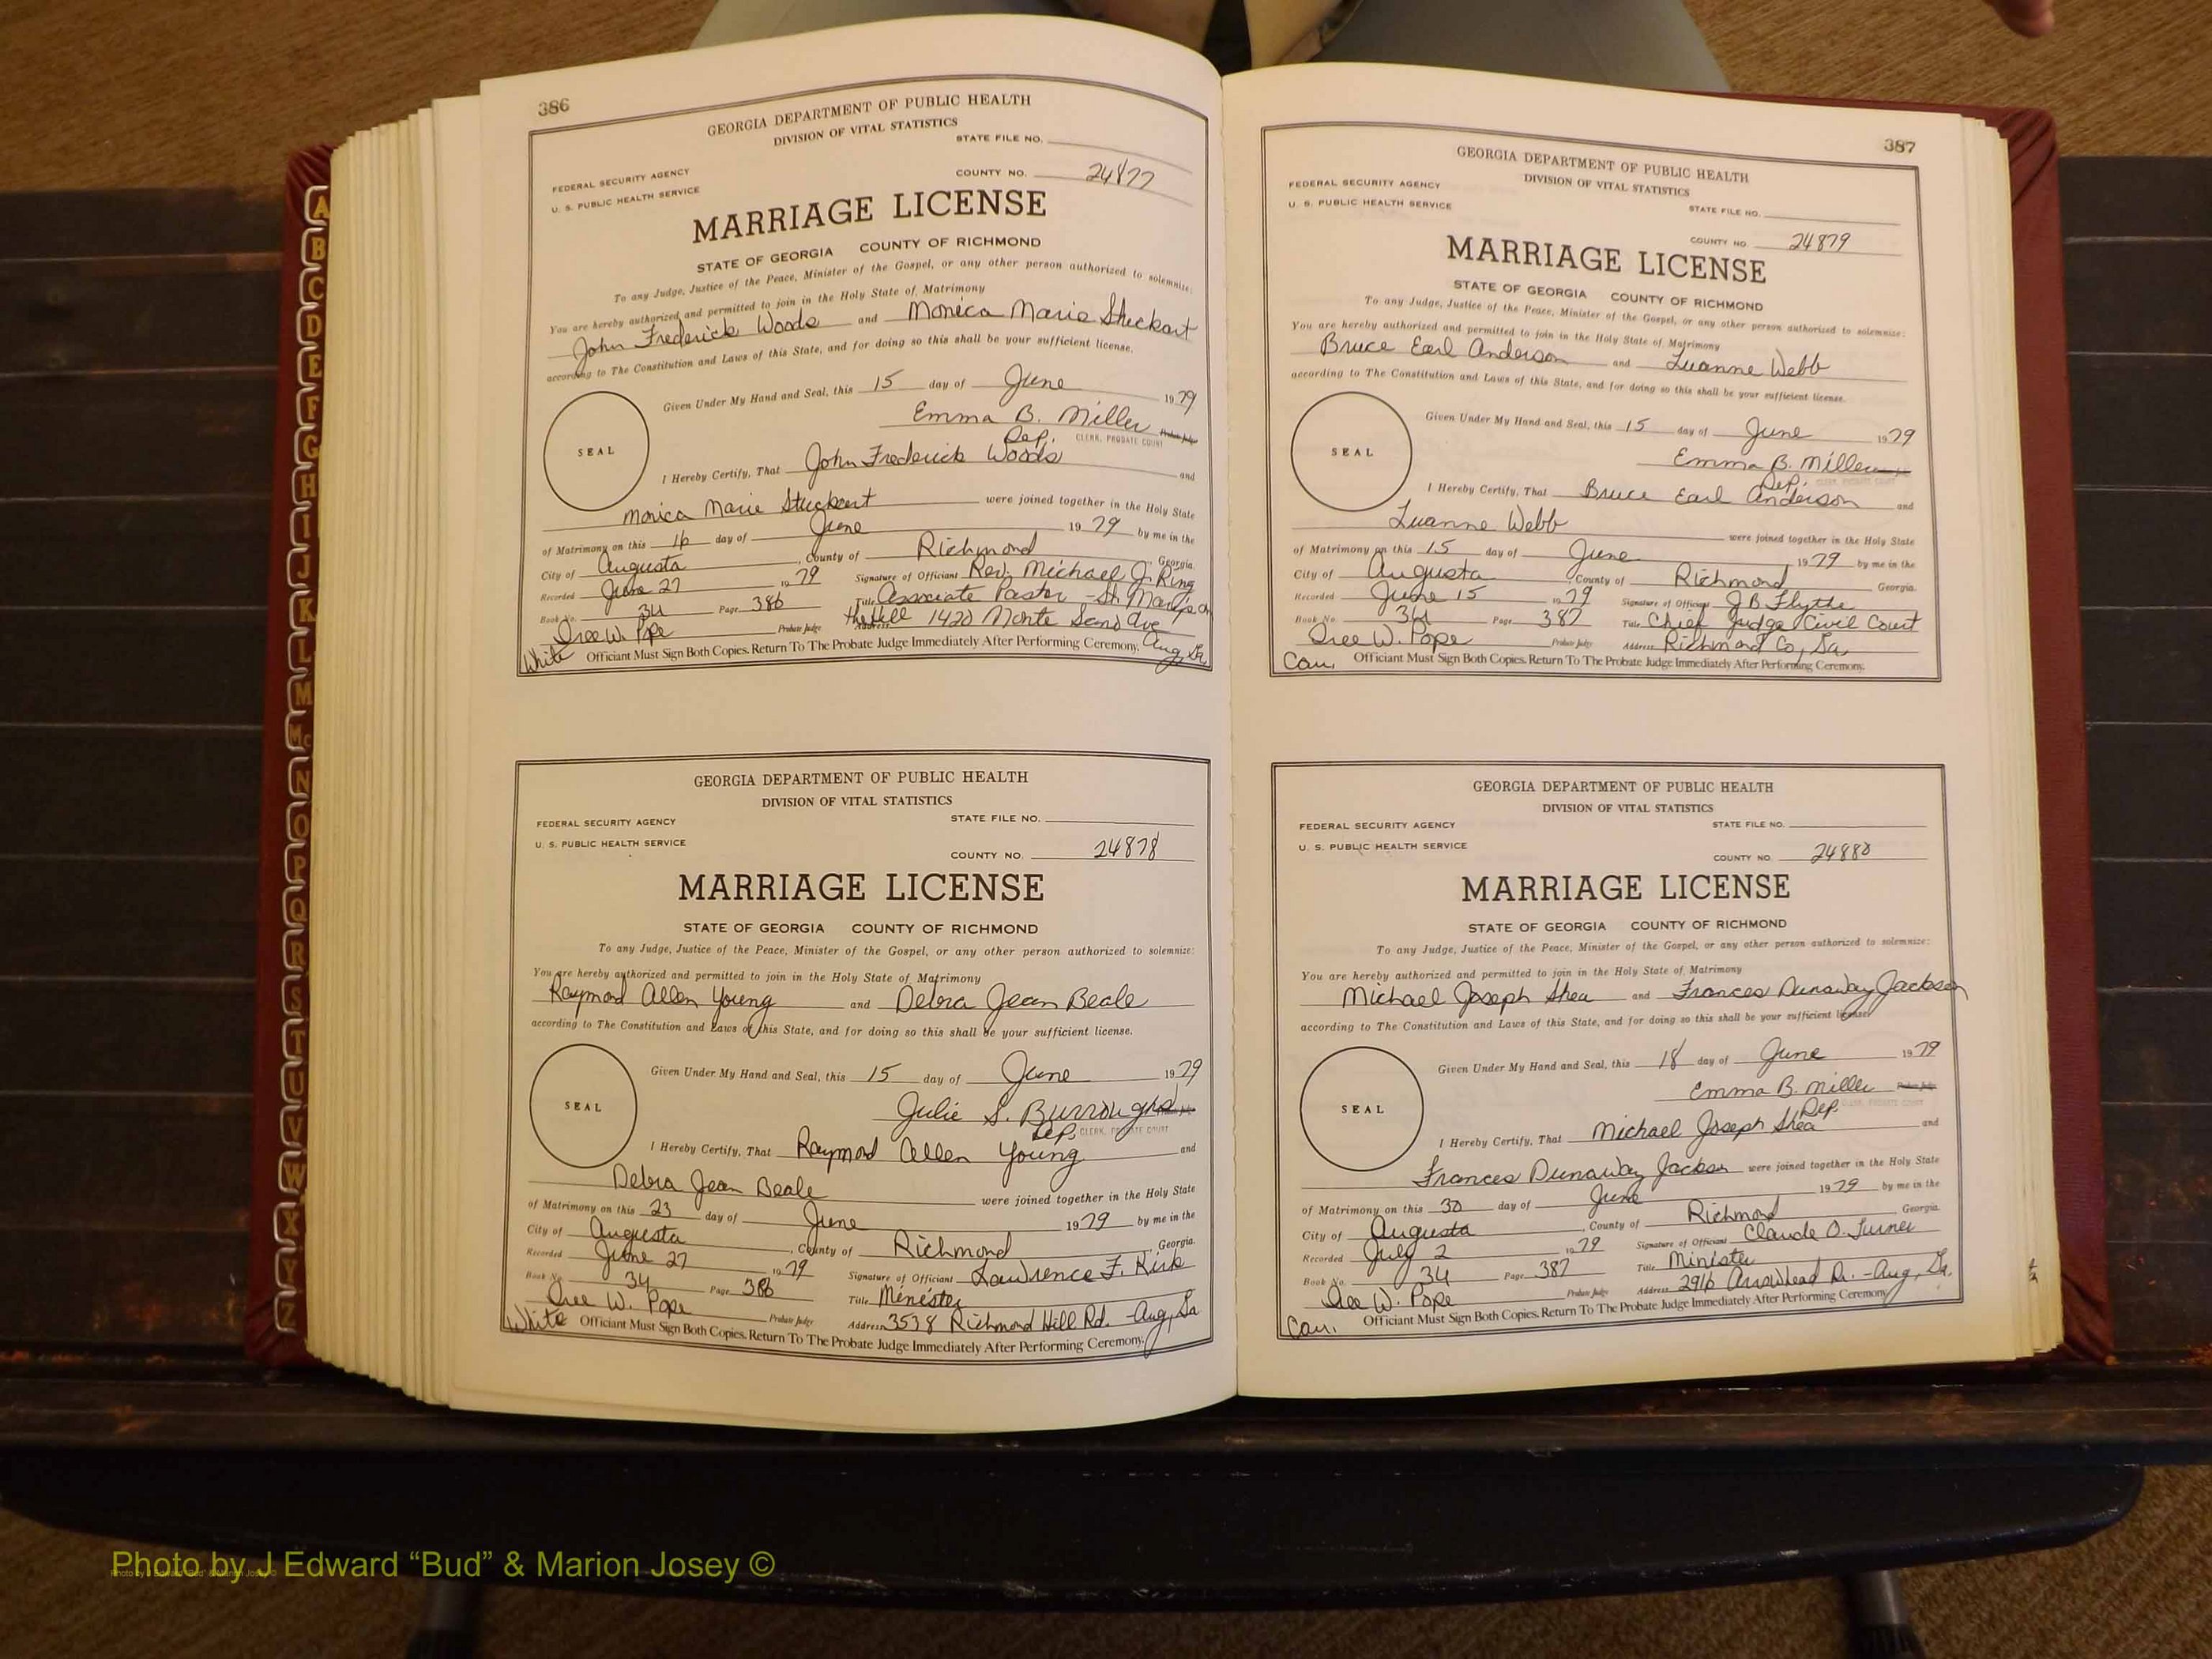 386
GEORGIA DEPARTMENT OF PUBLIC HEALTH
DIVISION OF VITAL STATISTICS
STATE FILE NO.
FEDERAL SECURITY AGENCY
COUNTY NO. 24877
U. S. PUBLIC HEALTH SERVICE
MARRIAGE LICENSE
STATE OF GEORGIA COUNTY OF RICHMOND
To any Judge, Justice of the Peace, Minister of the Gospel, or any other person authorized to solemnize:
You are hereby authorized and permitted to join in the Holy State of Matrimony
John Frederick Woods and Monica Marie Stuckart
according to The Constitution and Laws of this State, and for doing so this shall be your sufficient license.
Given Under My Hand and Seal, this 15 day of June 1979
Emma B. Miller Probate Judge
Dep. CLERK, PROBATE COURT
SEAL
I Hereby Certify, That John Frederick Woods and
Monica Marie Stuckart were joined together in the Holy State
of Matrimony on this 16 day of June 1979 by me in the
City of Augusta, County of Richmond, Georgia.
Recorded June 27 1979 Signature of Officiant Rev. Michael J. Ring
Book No. 34 Page 386 Title Associate Pastor - St. Mary's on
the Hill 1420 Monte Sano Ave
Address
W. Pope Probate Judge
White Officiant Must Sign Both Copies. Return To The Probate Judge Immediately After Performing Ceremony. Aug, Ga
GEORGIA DEPARTMENT OF PUBLIC HEALTH
DIVISION OF VITAL STATISTICS
FEDERAL SECURITY AGENCY
STATE FILE NO.
U. S. PUBLIC HEALTH SERVICE
COUNTY NO. 24878
MARRIAGE LICENSE
STATE OF GEORGIA COUNTY OF RICHMOND
To any Judge, Justice of the Peace, Minister of the Gospel, or any other person authorized to solemnize:
You are hereby authorized and permitted to join in the Holy State of Matrimony
Raymond Allen Young and Debra Jean Beale
according to The Constitution and Laws of this State, and for doing so this shall be your sufficient license.
Given Under My Hand and Seal, this 15 day of June 1979
Julie S. Burroughs
Dep. CLERK, PROBATE COURT
SEAL
I Hereby Certify, That Raymond Allen Young and
Debra Jean Beale were joined together in the Holy State
of Matrimony on this 23 day of June 1979 by me in the
City of Augusta, County of Richmond, Georgia.
Recorded June 27 1979 Signature of Officiant Lawrence F. Kirk
Book No. 34 Page 386 Title Minister
W. Pope Probate Judge Address 3538 Richmond Hill Rd. - Aug, Ga
White Officiant Must Sign Both Copies. Return To The Probate Judge Immediately After Performing Ceremony.
387
GEORGIA DEPARTMENT OF PUBLIC HEALTH
DIVISION OF VITAL STATISTICS
FEDERAL SECURITY AGENCY
U. S. PUBLIC HEALTH SERVICE
STATE FILE NO.
COUNTY NO. 24879
MARRIAGE LICENSE
STATE OF GEORGIA COUNTY OF RICHMOND
To any Judge, Justice of the Peace, Minister of the Gospel, or any other person authorized to solemnize:
You are hereby authorized and permitted to join in the Holy State of Matrimony
Bruce Earl Anderson and Luanne Webb
according to The Constitution and Laws of this State, and for doing so this shall be your sufficient license.
Given Under My Hand and Seal, this 15 day of June 1979
Emma B. Miller
Dep. CLERK, PROBATE COURT
SEAL
I Hereby Certify, That Bruce Earl Anderson and
Luanne Webb were joined together in the Holy State
of Matrimony on this 15 day of June 1979 by me in the
City of Augusta, County of Richmond, Georgia.
Recorded June 15 1979 Signature of Officiant J B Flythe
Book No. 34 Page 387 Title Chief Judge Civil Court
W. Pope Probate Judge Address Richmond Co, Ga,
Cau. Officiant Must Sign Both Copies. Return To The Probate Judge Immediately After Performing Ceremony.
GEORGIA DEPARTMENT OF PUBLIC HEALTH
DIVISION OF VITAL STATISTICS
FEDERAL SECURITY AGENCY
STATE FILE NO.
U. S. PUBLIC HEALTH SERVICE
COUNTY NO. 24880
MARRIAGE LICENSE
STATE OF GEORGIA COUNTY OF RICHMOND
To any Judge, Justice of the Peace, Minister of the Gospel, or any other person authorized to solemnize:
You are hereby authorized and permitted to join in the Holy State of Matrimony
Michael Joseph Shea and Frances Dunaway Jackson
according to The Constitution and Laws of this State, and for doing so this shall be your sufficient license.
Given Under My Hand and Seal, this 18 day of June 1979
Emma B. Miller Probate Judge
Dep. CLERK, PROBATE COURT
SEAL
I Hereby Certify, That Michael Joseph Shea and
Frances Dunaway Jackson were joined together in the Holy State
of Matrimony on this 30 day of June 1979 by me in the
City of Augusta, County of Richmond, Georgia.
Recorded July 2 1979 Signature of Officiant Claude O. Turner
Book No. 34 Page 387 Title Minister
W. Pope Probate Judge Address 2916 Arrowhead Dr. - Aug, Ga.
Cau. Officiant Must Sign Both Copies. Return To The Probate Judge Immediately After Performing Ceremony.
A
B
C
D
E
F
G
H
I
J
K
L
M
Mc
N
O
P
Q
R
S
T
U
V
W
X
Y
Z
Photo by J Edward “Bud” & Marion Josey ©
Photo by J Edward “Bud” & Marion Josey ©